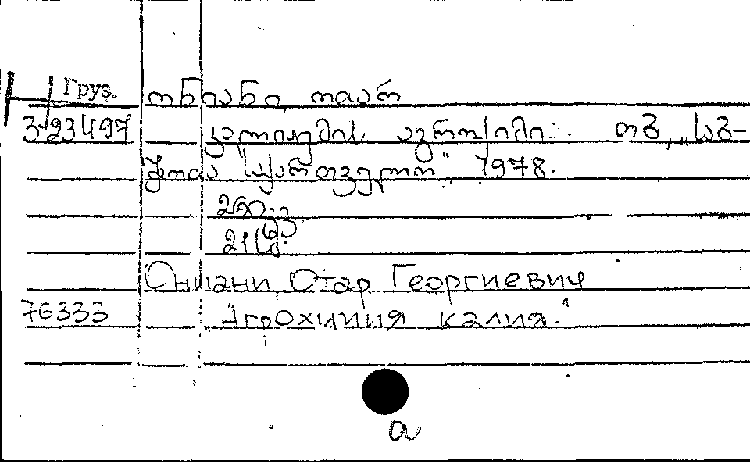 Груз.
ონიანი ოთარ
3-23497 კალიუმის აგროქიმია. თბ., „საბ-
ჭოთა საქართველო", 1978.
Ониани Отар Георгиевич
76333 "Агрохимия калия."
a